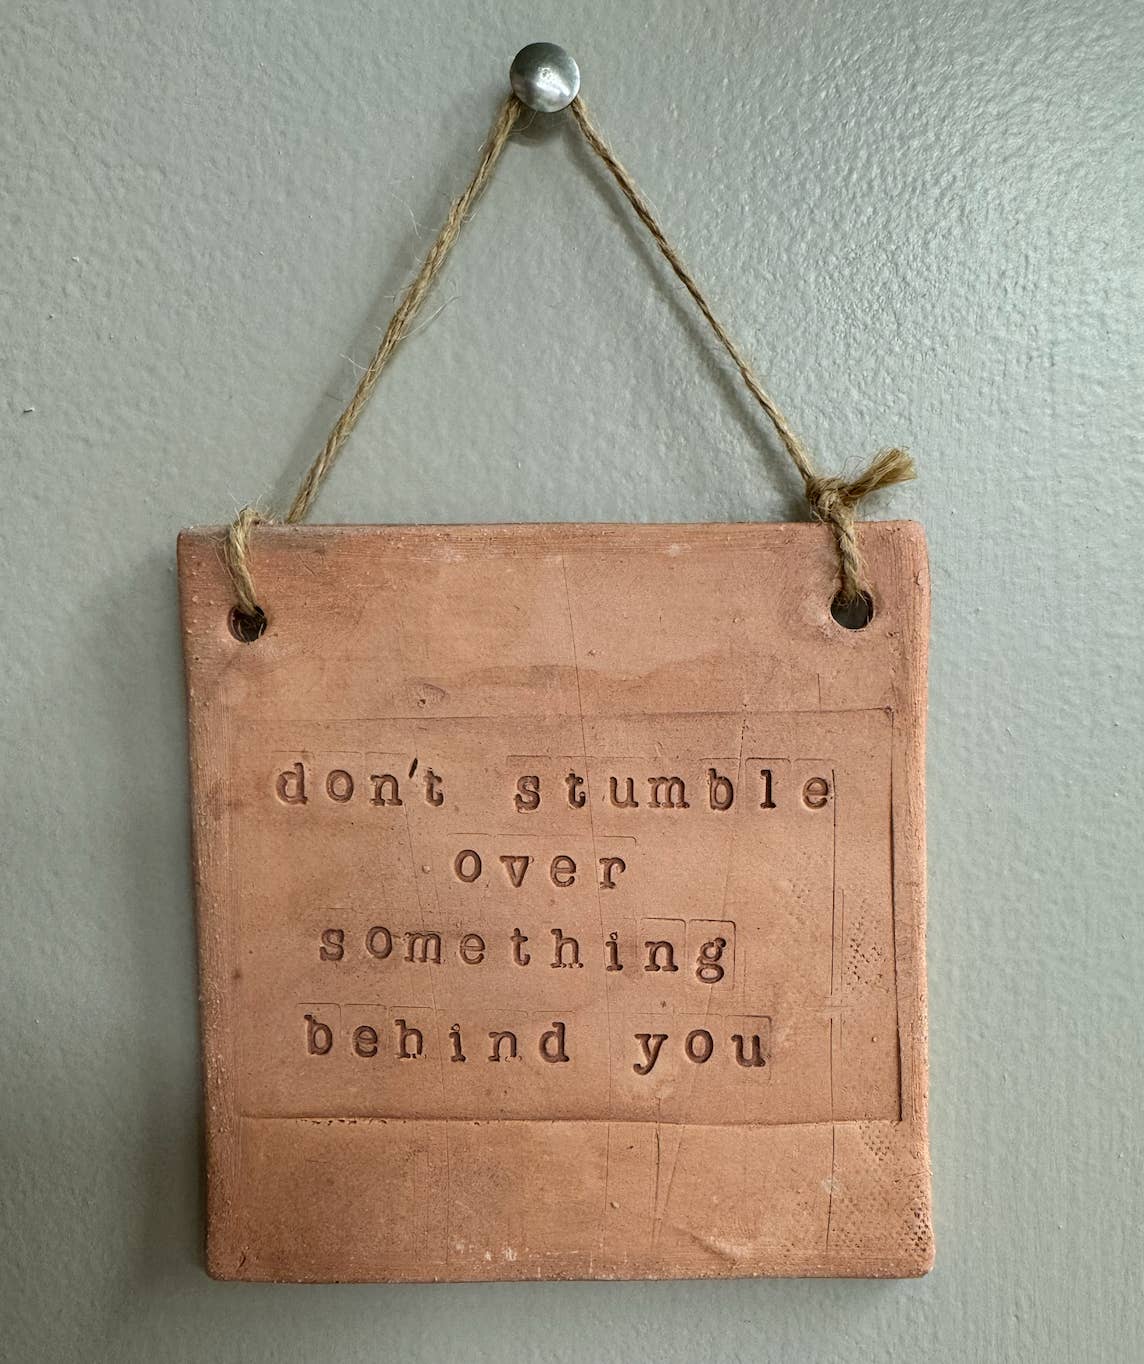 don't stumble
over
something
behind you